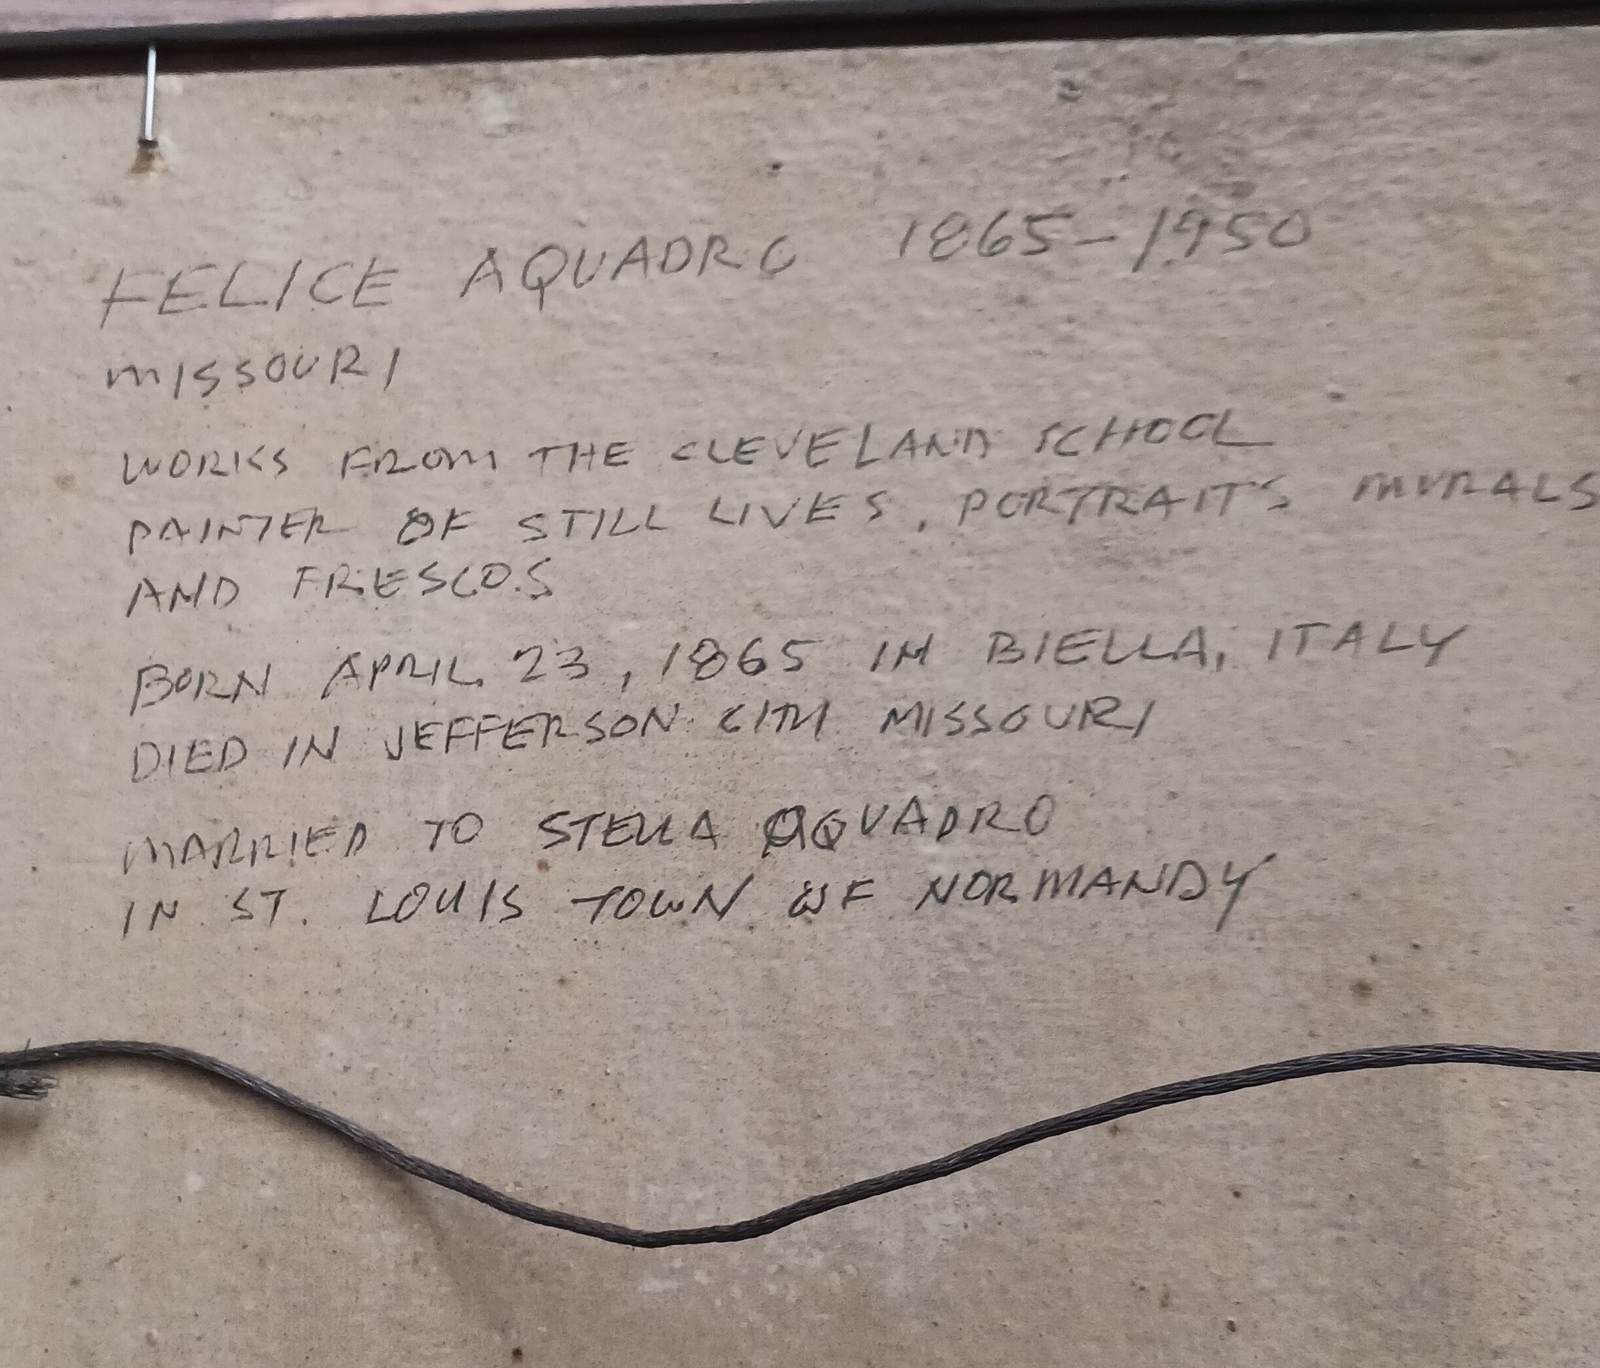 FELICE AQUADRO 1865-1950
MISSOURI
WORKS FROM THE CLEVELAND SCHOOL
PAINTER OF STILL LIVES, PORTRAITS MURALS
AND FRESCOS
BORN APRIL 23, 1865 IN BIELLA, ITALY
DIED IN JEFFERSON CITY MISSOURI
MARRIED TO STELLA AQUADRO
IN ST. LOUIS TOWN OF NORMANDY